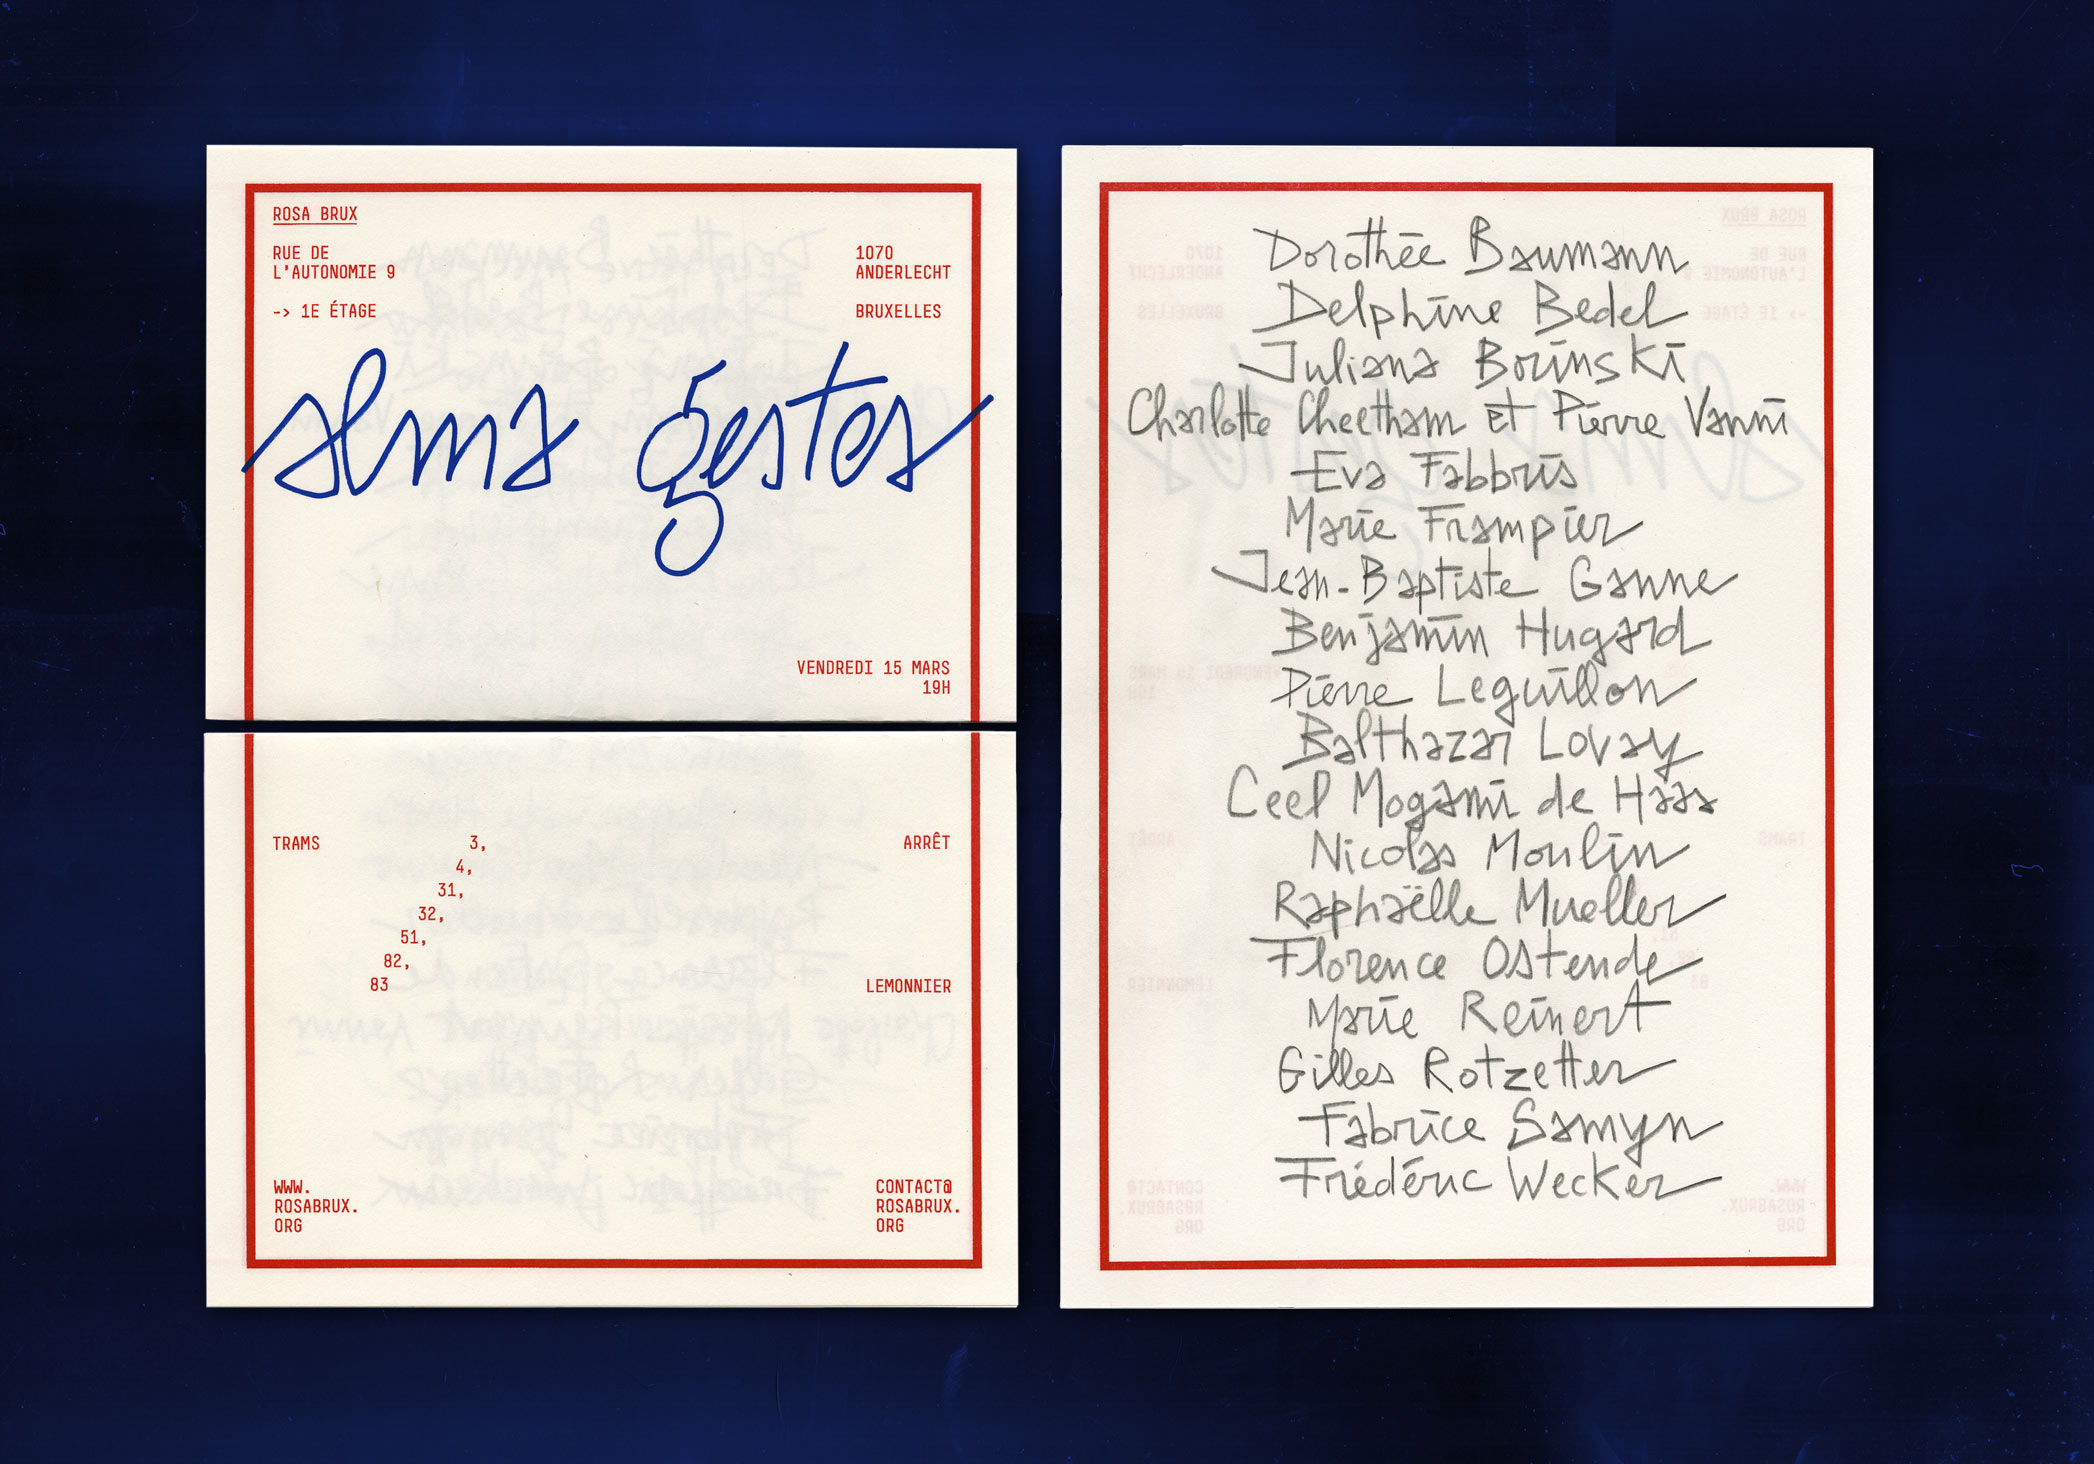 ROSA BRUX
RUE DE
L'AUTONOMIE 9
-> 1E ÉTAGE
1070
ANDERLECHT
BRUXELLES
alma gestes
VENDREDI 15 MARS
19H
TRAMS
3,
4,
31,
32,
51,
82,
83
ARRÊT
LEMONNIER
WWW.
ROSABRUX.
ORG
CONTACT@
ROSABRUX.
ORG
Dorothée Baumann
Delphine Bedel
Juliana Borinski
Charlotte Cheetham et Pierre Vanni
Eva Fabbris
Marie Frampier
Jean-Baptiste Ganne
Benjamin Hugard
Pierre Leguillon
Balthazar Lovay
Ceel Mogami de Haas
Nicolas Moulin
Raphaëlle Mueller
Florence Ostende
Marie Reinert
Gilles Rotzetter
Fabrice Samyn
Frédéric Wecker